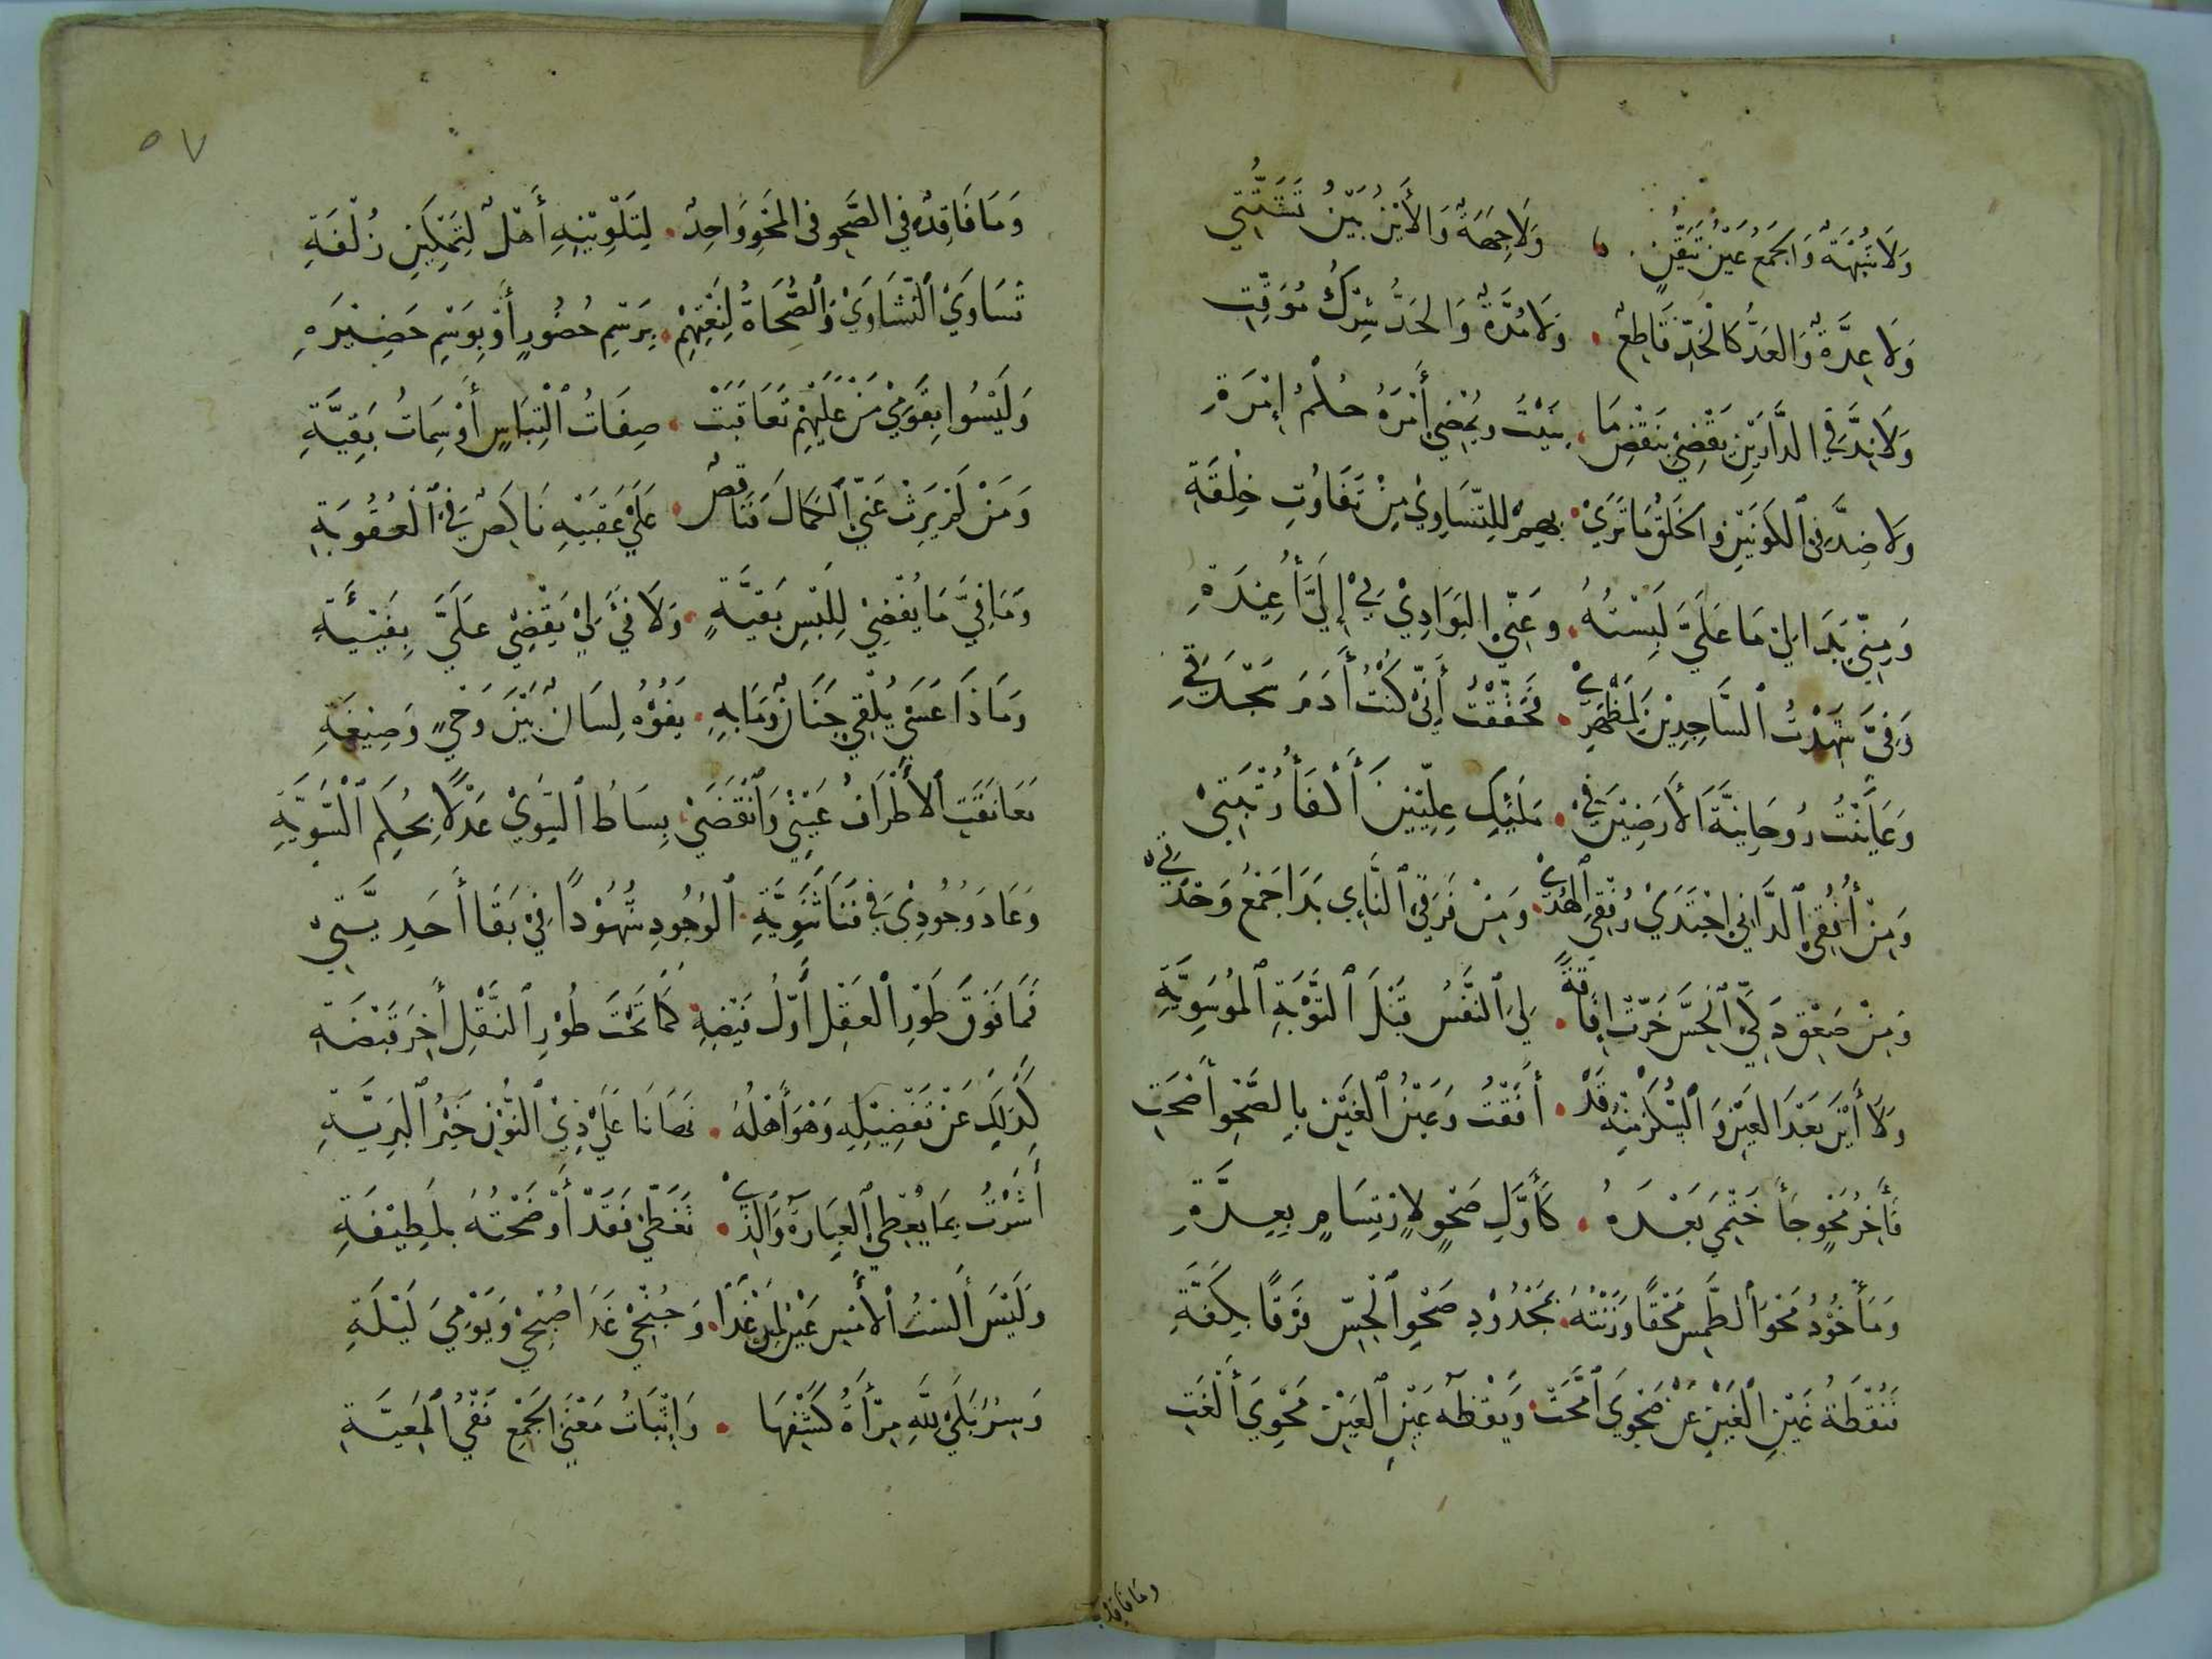 وَلَا شُبْهَةٌ وَالجَمْعُ عَيْنُ تَيَقُّنٍ ، وَلَا جِهَةٌ وَالأَيْنُ بَيْنُ تَشَتُّتِي
وَلَا عِدَّةٌ وَالعَدُّ كَالحَدِّ قَاطِعٌ . وَلَا مُدَّةٌ وَالحَدُّ شِرْكُ مُوَقِّتِ
وَلَا نِدَّ فِي الدَّارَيْنِ يَقْضِي بِنَقْضِ مَا . بَنَيْتُ وَيُمْضِي أَمْرَهُ حُكْمُ إِمْرَةِ
وَلَا ضِدَّ فِي الكَوْنَيْنِ وَالخَلْقُ مَا تَرَي . بِهِمْ لِلتَّسَاوِي مِنْ تَفَاوُتِ خِلْقَةِ
وَمِنِّي بَدَا لِي مَا عَلَيَّ لَبِسْتُهُ . وَعَنِّي البَوَادِي بِي إِلَيَّ أُعِيْدَةِ
وَفِيَّ شَهِدْتُ السَّاجِدِيْنَ لِمَظْهَرِي . فَحَقَّقْتُ أَنِّي كُنْتُ أَدَمَ سَجْدَتِي
وَعَايَنْتُ رُوحَانِيَّةَ الأَرَضِيْنَ فِي . مَلَئِكِ عِلِّيِّيْنَ أَكْفَأَ رُتْبَتِي
وَمِنْ أُفُقِي الدَّانِي اجْتَدَي رُفْقِي الهُدَي . وَمِنْ فَرْقِي النَّائِي بَدَا جَمْعُ وَحْدَتِي
وَمِنْ صَعْقِ دَكِّي الحِسَّ خَرَّتْ إِفَاقَةً . لِيَ النَّفْسُ قَبْلَ التَّوْبَةِ المُوسَوِيَّةِ
وَلَا أَيْنَ بَعْدَ العَيْنِ وَالسُّكْرُ مِنْهُ قَدْ . أَفَقْتُ وَعَيْنُ الغَيْنِ بِالصَّحْوِ أَصْحَتِ
فَأَخِرُ مَحْوٍ جَأَ خَتْمِيَ بَعْدَهُ . كَأَوَّلِ صَحْوٍ لِارْتِسَامٍ بِعِدَّةِ
وَمَأْخُوْذُ مَحْوِ الطَّمْسِ مَحْقًا وَزَنْتُهُ . بِمَجْذُوْذِ صَحْوِ الحِسِّ فَرْقًا بِكِفَّةِ
فَنُقْطَةُ غَيْنِ الغَيْنِ عَنْ صَحْوِيَ امَّحَتْ . وَيَقْظَةُ عَيْنِ العَيْنِ مَحْوِيَ أَلْغَتِ
وما فاقد
٥٧
وَمَا فَاقِدٌ فِي الصَّحْوِ فِي المَحْوِ وَاحِدٌ . لِتَلْوِيْنِهِ أَهْلٌ لِتَمْكِيْنِ زُلْفَةِ
تَسَاوَي النَّشَاوَي وَالصُّحَاةُ لِنَعْتِهِمْ . بِرَسْمِ حُضُورٍ أَوْ بِوَسْمِ حَضِيْرَةِ
وَلَيْسُوا بِقَوْمِي مَنْ عَلَيْهِمْ تَعَاقَبَتْ . صِفَاتُ الْتِبَاسٍ أَوْ سِمَاتُ بَقِيَّةِ
وَمَنْ لَمْ يَرِثْ عَنِّي الكَمَالَ فَنَاقِصٌ . عَلَي عَقِبَيْهِ نَاكِصٌ فِي العُقُوبَةِ
وَمَا فِيَّ مَا يُفْضِي لِلَبْسِ بَقِيَّةٍ . وَلَا فَيْءَ لِي يَقْضِي عَلَيَّ بِفَيْئَةِ
وَمَاذَا عَسَي يُلْقِي جَنَانٌ وَمَا بِهِ . يَفُوْهُ لِسَانٌ بَيْنَ وَحْيٍ وَصِيْغَةِ
تَعَانَقَتِ الأَطْرَافُ عِنْدِي وَانْقَضَي . بِسَاطُ السِّوَي عَدْلًا بِحُكْمِ السَّوِيَّةِ
وَعَادَ وُجُودِي فِي فَنَا ثَنَوِيَّةِ . الوُجُودِ شُهُوْدًا فِي بَقَا أَحَدِيَّتِي
فَمَا فَوْقَ طَوْرِ العَقْلِ أَوَّلُ فَيْضِهِ . كَمَا تَحْتَ طُوْرِ النَّقْلِ أَخِرُ قَبْضَةِ
لِذَلِكَ عَنْ تَفْضِيْلِهِ وَهْوَ أَهْلُهُ . نَهَانَا عَلَي ذِي النُّوْنِ خَيْرُ البَرِيَّةِ
أَشَرْتُ بِمَا يُعْطِي العِبَارَةُ وَالَّذِي . تَغَطَّي فَقَدْ أَوْضَحْتُهُ بِلَطِيْفَةِ
وَلَيْسَ أَلَسْتُ الأَمْسِ غَيْرًا لِمَنْ غَدَا . وَجُنْحِي غَدَا صُبْحِي وَيَوْمِيَ لَيْلَةِ
وَسِرُّ بَلَي لِلَّهِ مِرْأَةُ كَشْفِهَا . وَإِثْبَاتُ مَعْنَي الجَمْعِ نَفْيُ المَعِيَّةِ